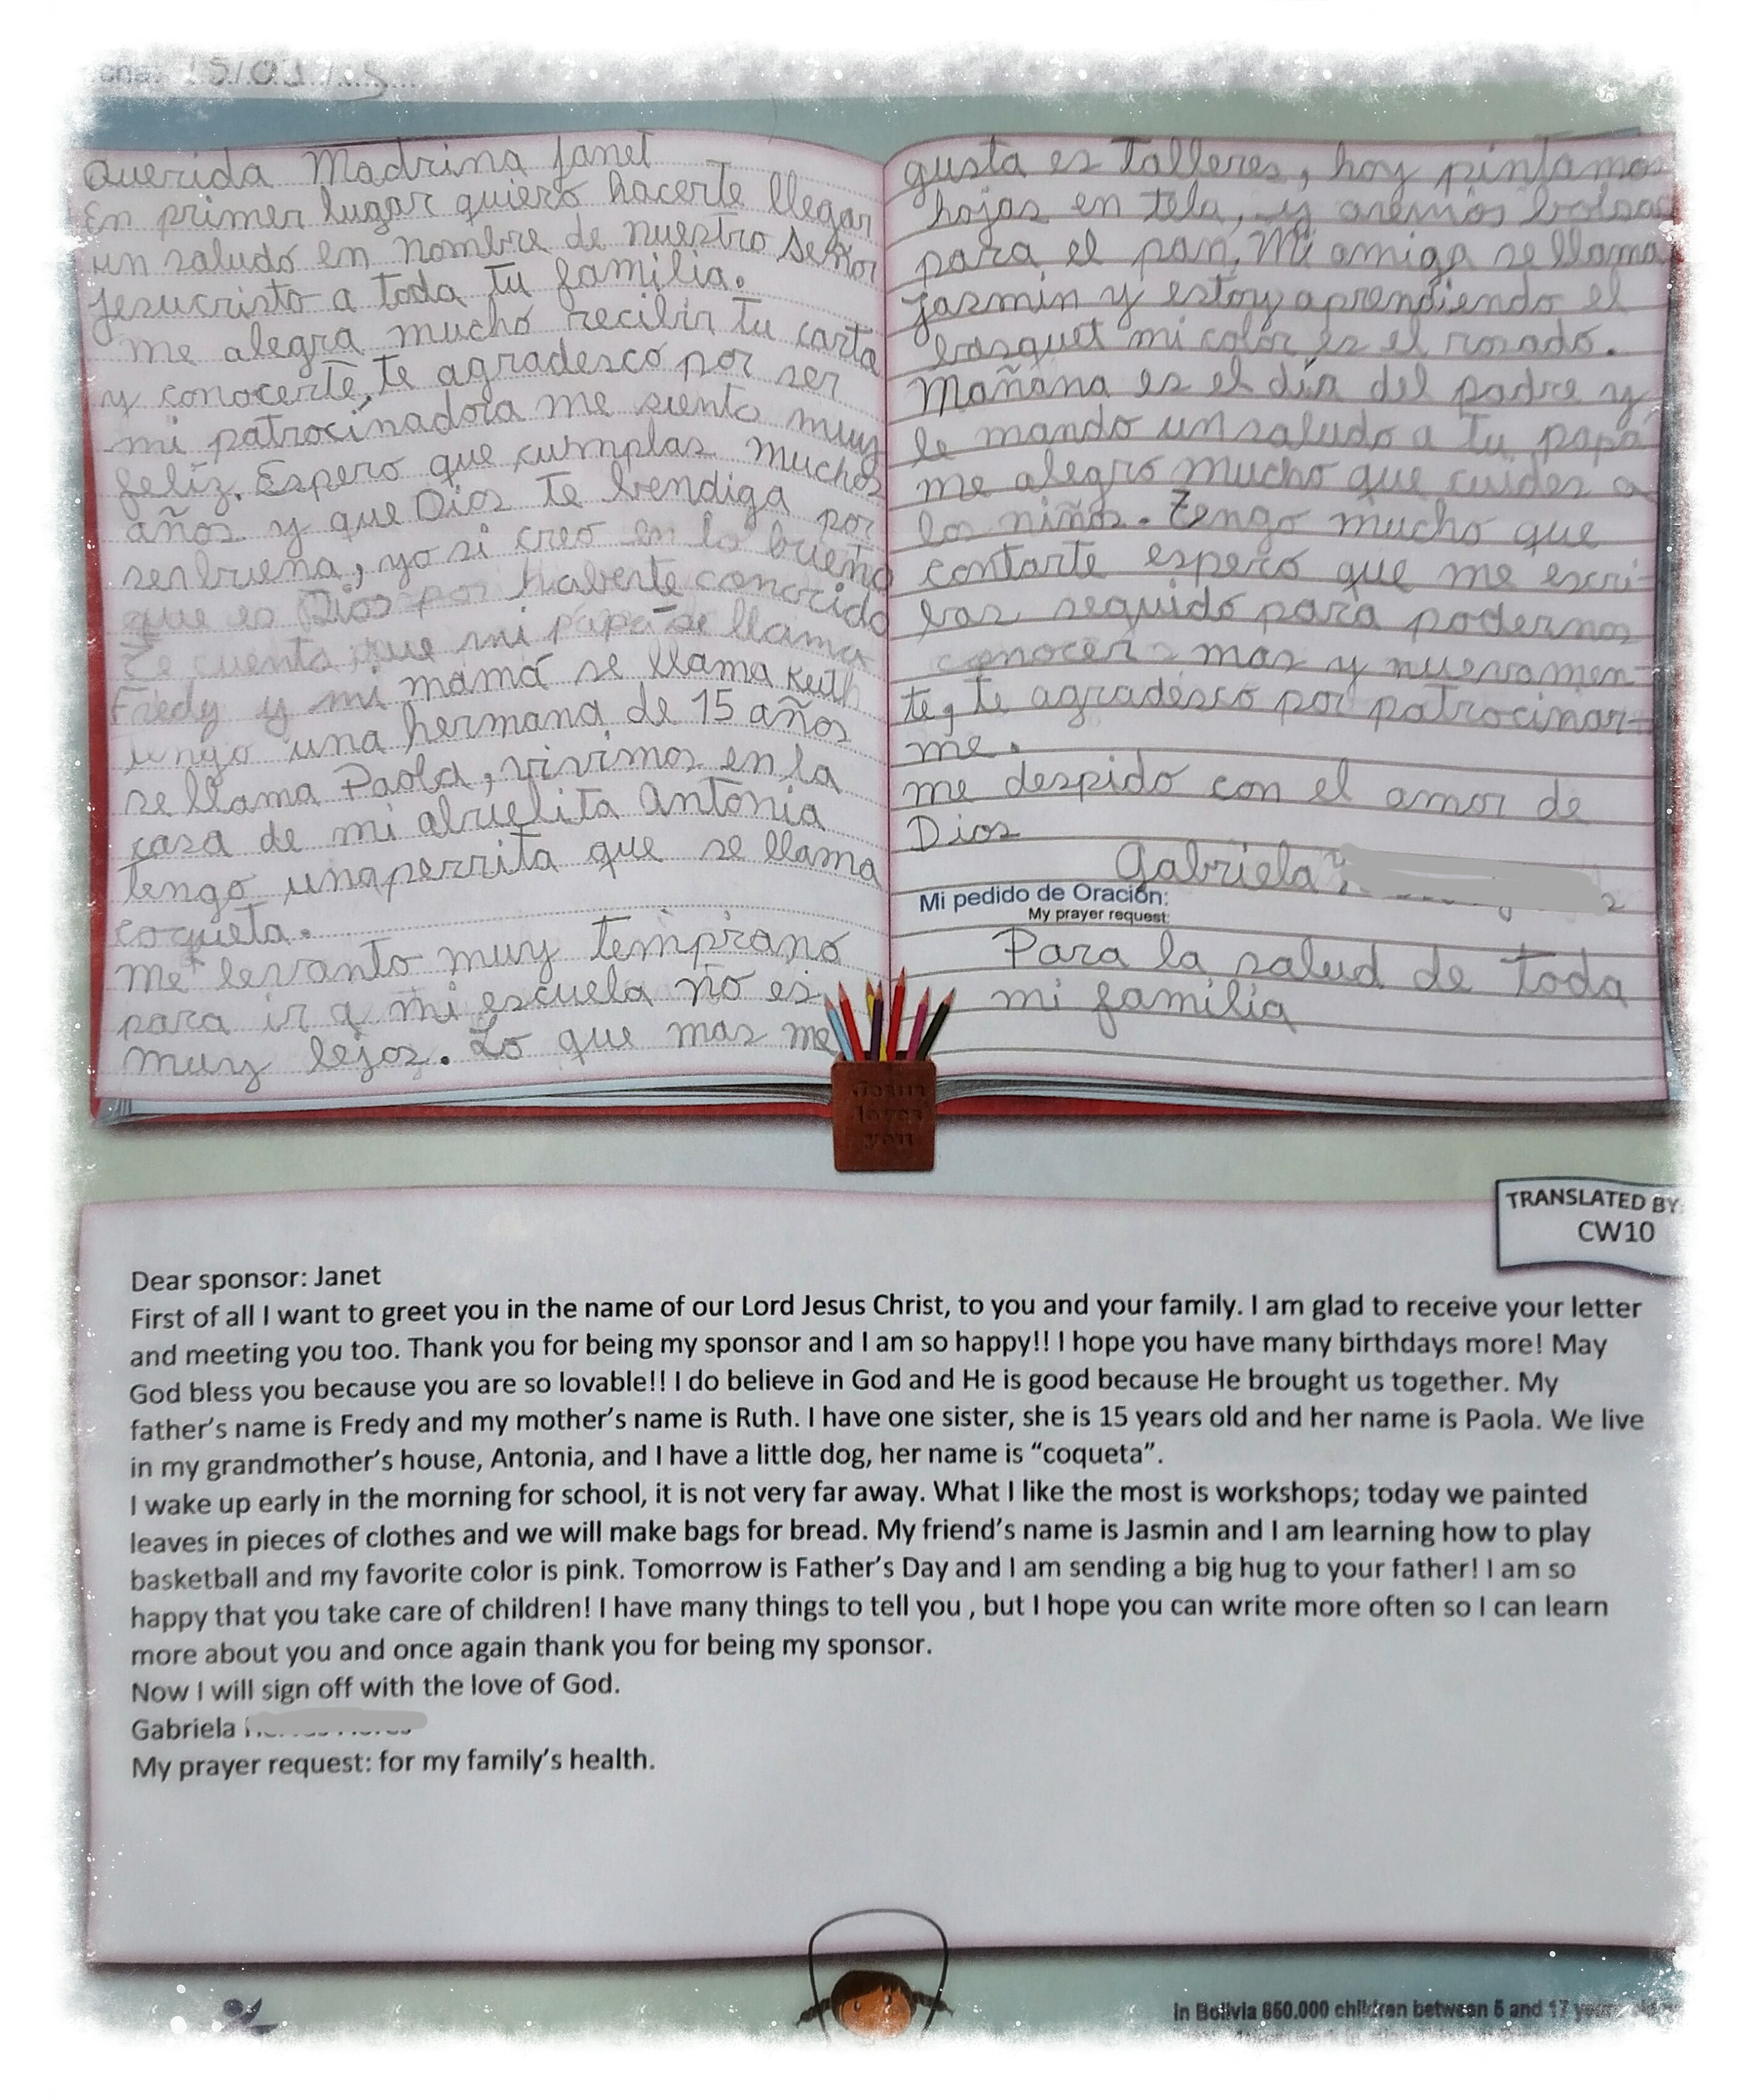 Querida Madrina Janet
En primer lugar quiero hacerte llegar
un saludo en nombre de nuestro Señor
Jesucristo a toda tu familia.
me alegra mucho recibir tu carta
y conocerte, te agradesco por ser
mi patrocinadora me siento muy
feliz. Espero que cumplas muchos
años y que Dios te bendiga por
ser buena, yo si creo en lo bueno
que es Dios por haberte conocido
Te cuento que mi papá se llama
Fredy y mi mamá se llama Ruth
tengo una hermana de 15 años
se llama Paola, vivimos en la
casa de mi abuelita Antonia
tengo una perrita que se llama
coqueta.
me levanto muy temprano
para ir a mi escuela no es
muy lejos. Lo que mas me
gusta es Talleres, hoy pintamos
hojas en tela, y aremos bolsas
para el pan. Mi amiga se llama
Jasmin y estoy aprendiendo el
basquet mi color es el rosado.
Mañana es el día del padre y
le mando un saludo a tu papá
me alegro mucho que cuides a
los niños. Tengo mucho que
contarte espero que me escri-
bas seguido para podernos
conocer mas y nuevamen-
te, te agradesco por patrocinar-
me.
me despido con el amor de
Dios
Gabriela
Mi pedido de Oración:
My prayer request:
Para la salud de toda
mi familia
Jesus
loves
you
TRANSLATED BY
CW10
Dear sponsor: Janet
First of all I want to greet you in the name of our Lord Jesus Christ, to you and your family. I am glad to receive your letter
and meeting you too. Thank you for being my sponsor and I am so happy!! I hope you have many birthdays more! May
God bless you because you are so lovable!! I do believe in God and He is good because He brought us together. My
father's name is Fredy and my mother's name is Ruth. I have one sister, she is 15 years old and her name is Paola. We live
in my grandmother's house, Antonia, and I have a little dog, her name is "coqueta".
I wake up early in the morning for school, it is not very far away. What I like the most is workshops; today we painted
leaves in pieces of clothes and we will make bags for bread. My friend's name is Jasmin and I am learning how to play
basketball and my favorite color is pink. Tomorrow is Father's Day and I am sending a big hug to your father! I am so
happy that you take care of children! I have many things to tell you , but I hope you can write more often so I can learn
more about you and once again thank you for being my sponsor.
Now I will sign off with the love of God.
Gabriela
My prayer request: for my family's health.
In Bolivia 850.000 children between 5 and 17